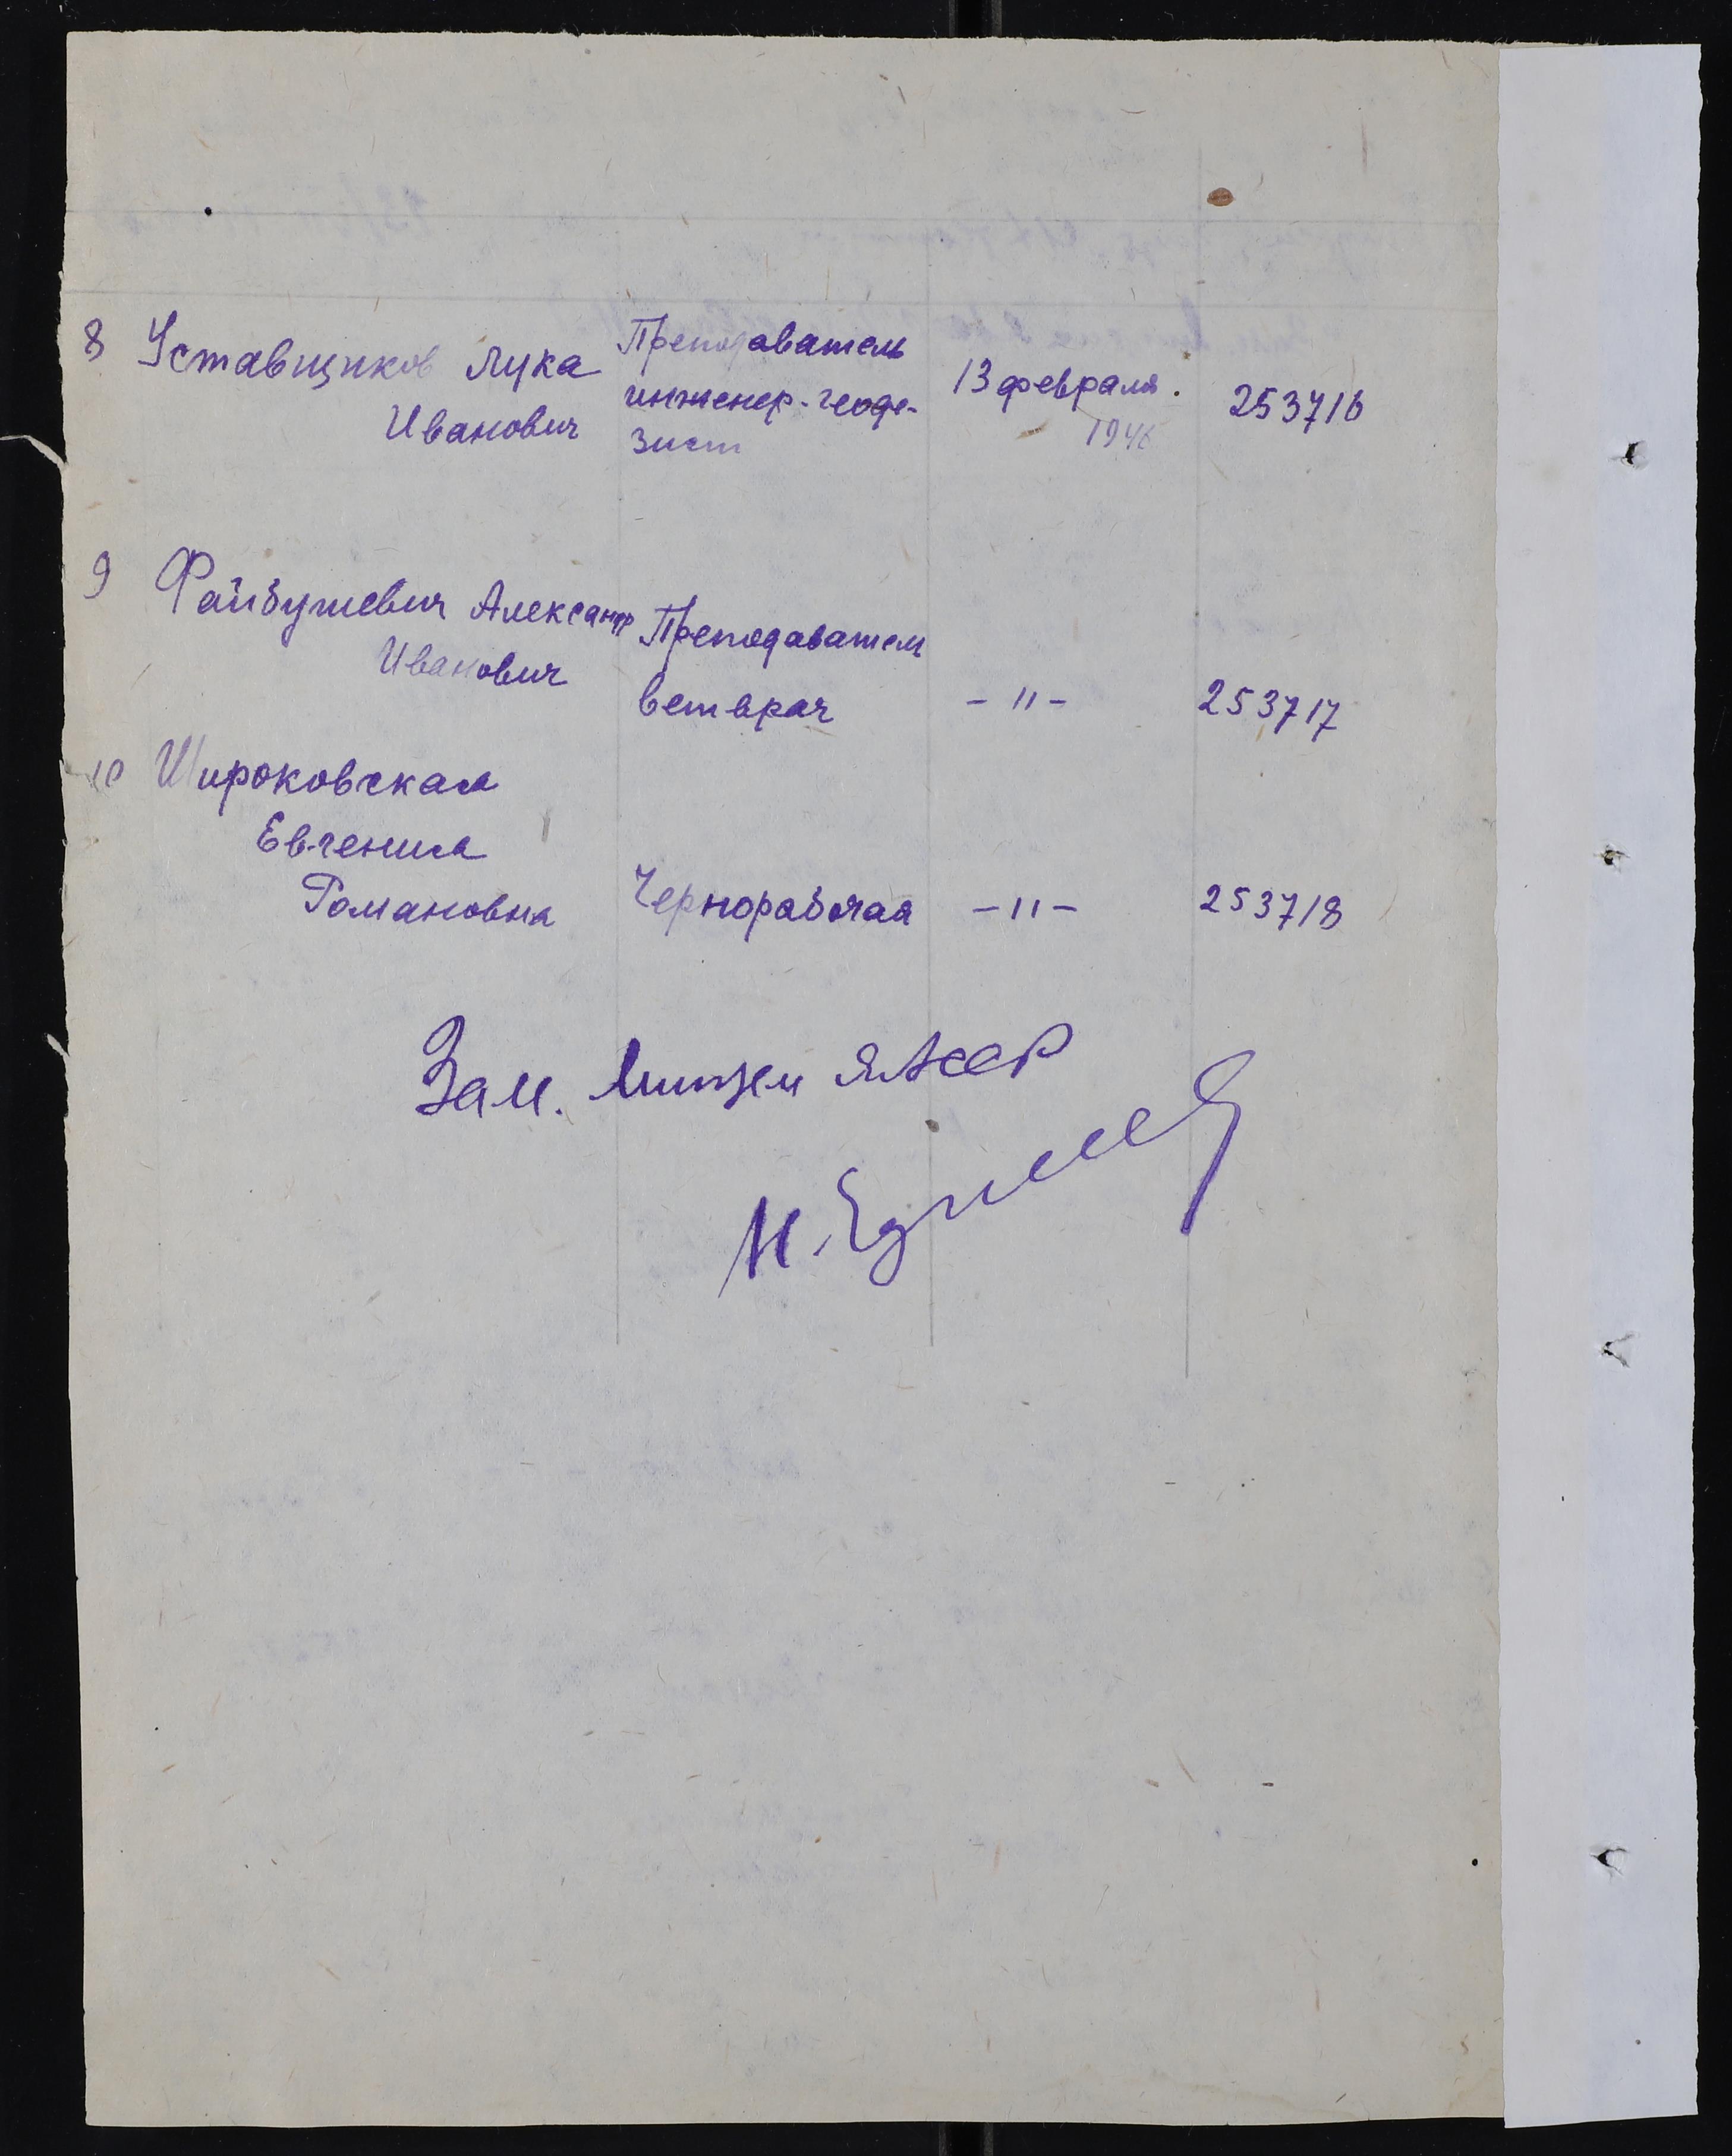 8 Уставщиков Лука Преподаватель
Иванович инженер-геоде-
зист
13 февраля.
1946
253716
9 Файбушевич Александр Преподаватель
Иванович ветврач -"- 253717
10 Широковская
Евгения
Романовна Чернорабочая -"- 253718
Зам. Минзем ЯАССР
Н.